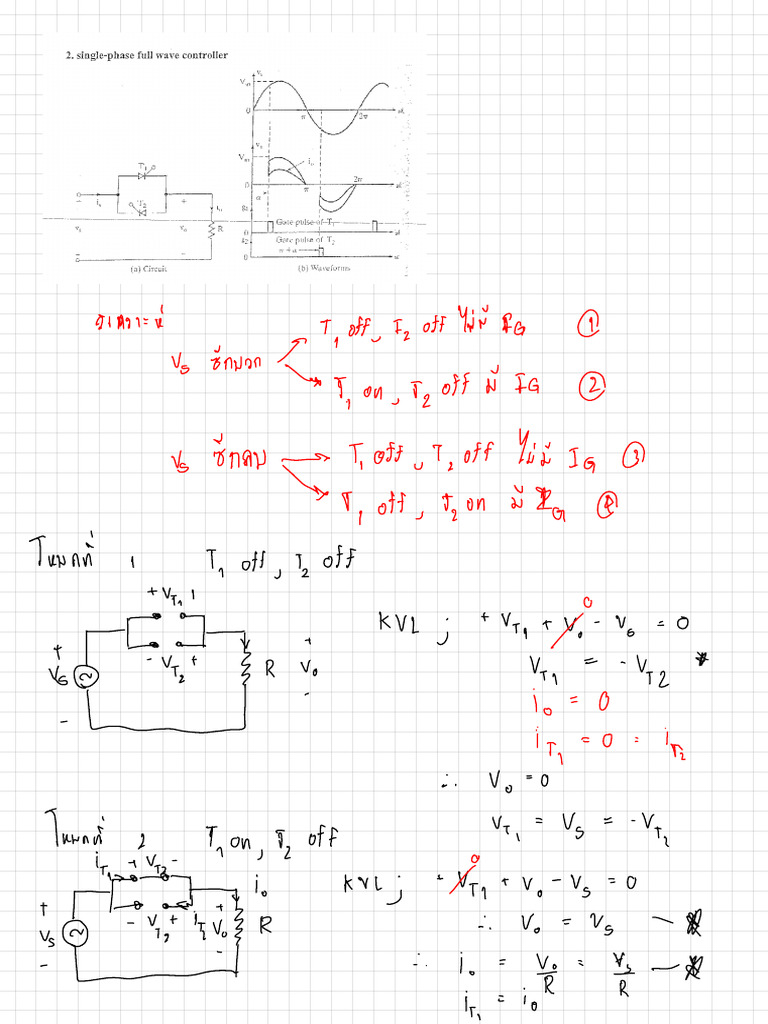 2. single-phase full wave controller
vs
Vm
0
π
2π
ωt
vo
Vm
io
0
π
2π
ωt
α
T1
T2
is
io
+
+
vs
vo
R
-
-
g1
Gate pulse of T1
0
ωt
g2
Gate pulse of T2
π + α
0
ωt
(a) Circuit
(b) Waveforms
วิเคราะห์
Vs ซีกบวก
T1 off, T2 off ไม่มี IG ①
T1 on, T2 off มี IG ②
Vs ซีกลบ
T1 off, T2 off ไม่มี IG ③
T1 off, T2 on มี IG ④
โหมดที่ 1 T1 off, T2 off
+ VT1 -
- VT2 +
+ Vs -
R
+ Vo -
KVL ; + VT1 + Vo - Vs = 0
0
VT1 = - VT2 *
io = 0
iT1 = 0 = iT2
∴ Vo = 0
VT1 = Vs = - VT2
โหมดที่ 2 T1 on, T2 off
iT1 + VT2 -
- VT2 + iT2
io
+ Vs -
+ Vo -
R
0
KVL ; + VT1 + Vo - Vs = 0
∴ Vo = Vs — *
∴ io = Vo/R = Vs/R — *
iT1 = io